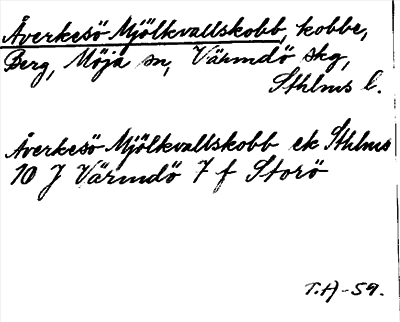 Åverkesö Mjölkvallskobb, kobbe,
Berg, Möja sn, Värmdö skg,
Sthlms l.
Åverkesö Mjölkvallskobb ek Sthlms
10 J Värmdö 7 f Storö
T.H-59.